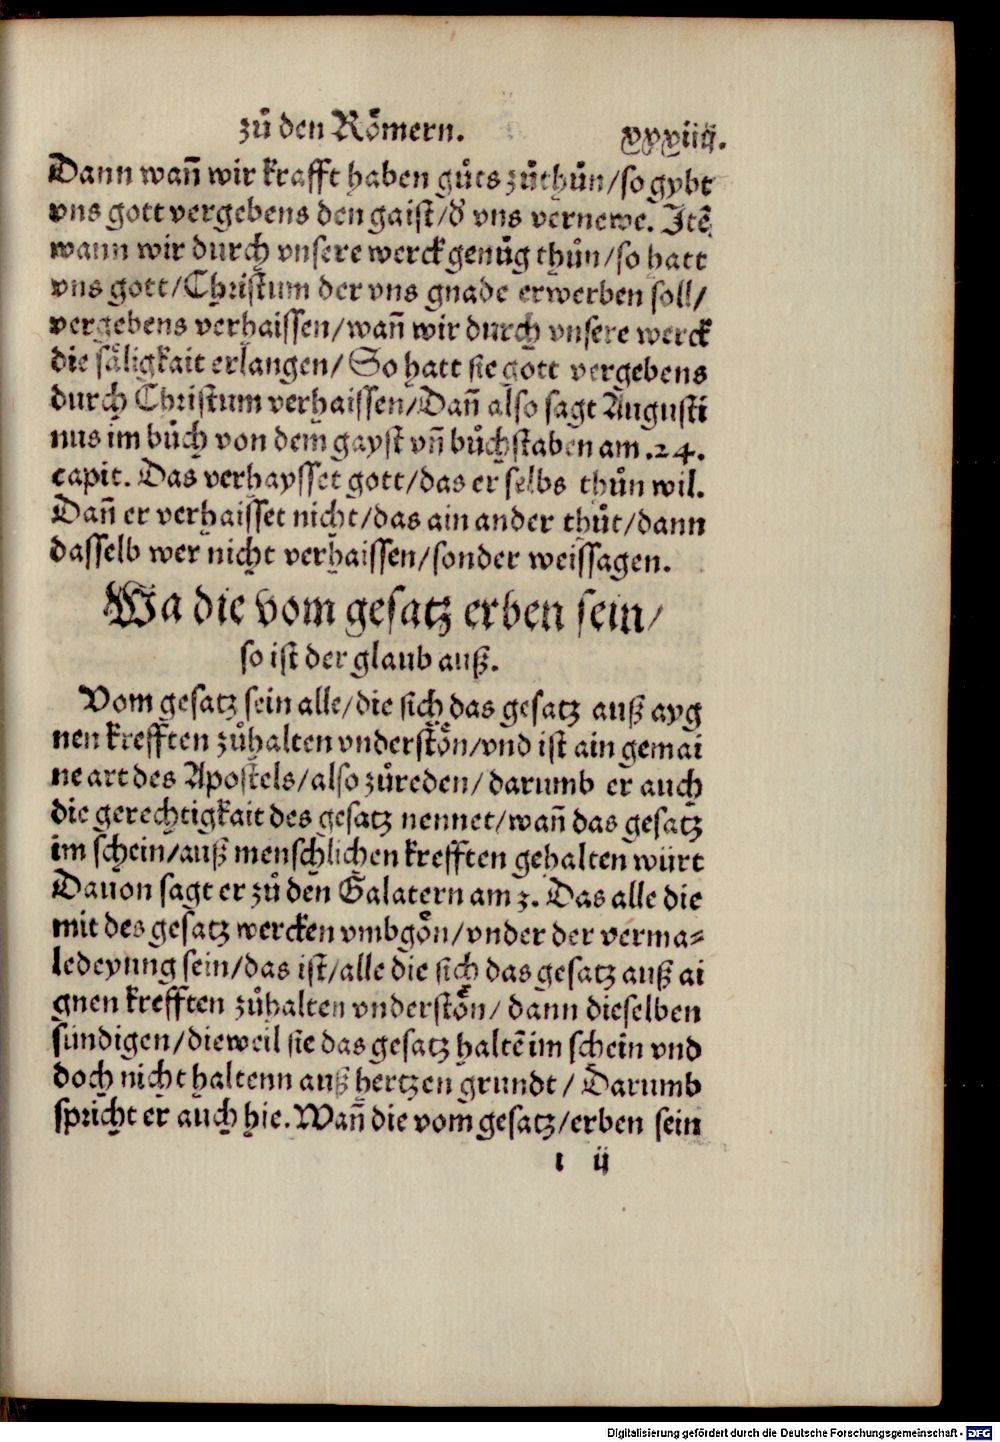 zů den Rômern. xxxiiij.
Dann wañ wir krafft haben gůts zůthůn/so gybt
vns gott vergebens den gaist/d' vns vernewe. Itē
wann wir durch vnsere werck genůg thůn/so hatt
vns gott/Christum der vns gnade erwerben soll/
vergebens verhaissen/wañ wir durch vnsere werck
die säligkait erlangen/ So hatt sie gott vergebens
durch Christum verhaissen/Dañ also sagt Augusti
nus im bůch von dem gayst vñ bůchstaben am .24.
capit. Das verhaysset gott/das er selbs thůn wil.
Dañ er verhaisset nicht/das ain ander thůt/dann
dasselb wer nicht verhaissen/sonder weissagen.
Wa die vom gesatz erben sein/
so ist der glaub auß.
Vom gesatz sein alle/die sich das gesatz auß ayg
nen krefften zůhalten vnderstôn/vnd ist ain gemai
ne art des Apostels/also zůreden/ darumb er auch
die gerechtigkait des gesatz nennet/wañ das gesatz
im schein/auß menschlichen krefften gehalten würt
Dauon sagt er zů den Galatern am 3. Das alle die
mit des gesatz wercken vmbgôn/vnder der verma⸗
ledeyung sein/das ist/alle die sich das gesatz auß ai
gnen krefften zůhalten vnderstôn/ dann dieselben
sündigen/dieweil sie das gesatz haltē im schein vnd
doch nicht haltenn auß hertzen grundt/ Darumb
spricht er auch hie. Wañ die vom gesatz/erben sein
ı ij
Digitalisierung gefördert durch die Deutsche Forschungsgemeinschaft - DFG